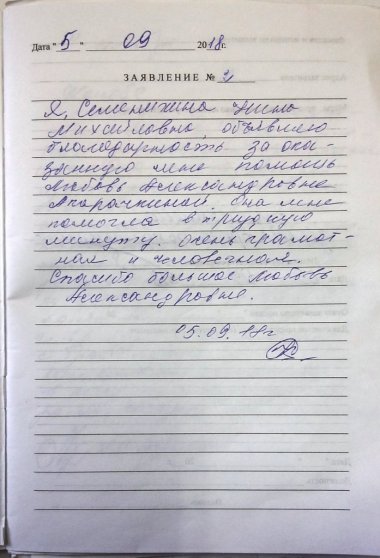 Дата "5" 09 2018г.
ЗАЯВЛЕНИЕ № 2
Я, Семенихина Нина
Михайловна, объявляю
благодарность за ока-
занную мне помощь
Любовь Александровне
она мне
помогла в трудную
минуту. Очень грамот-
ная и человечная.
Спасибо большое Любовь
Александровне.
05.09.18г